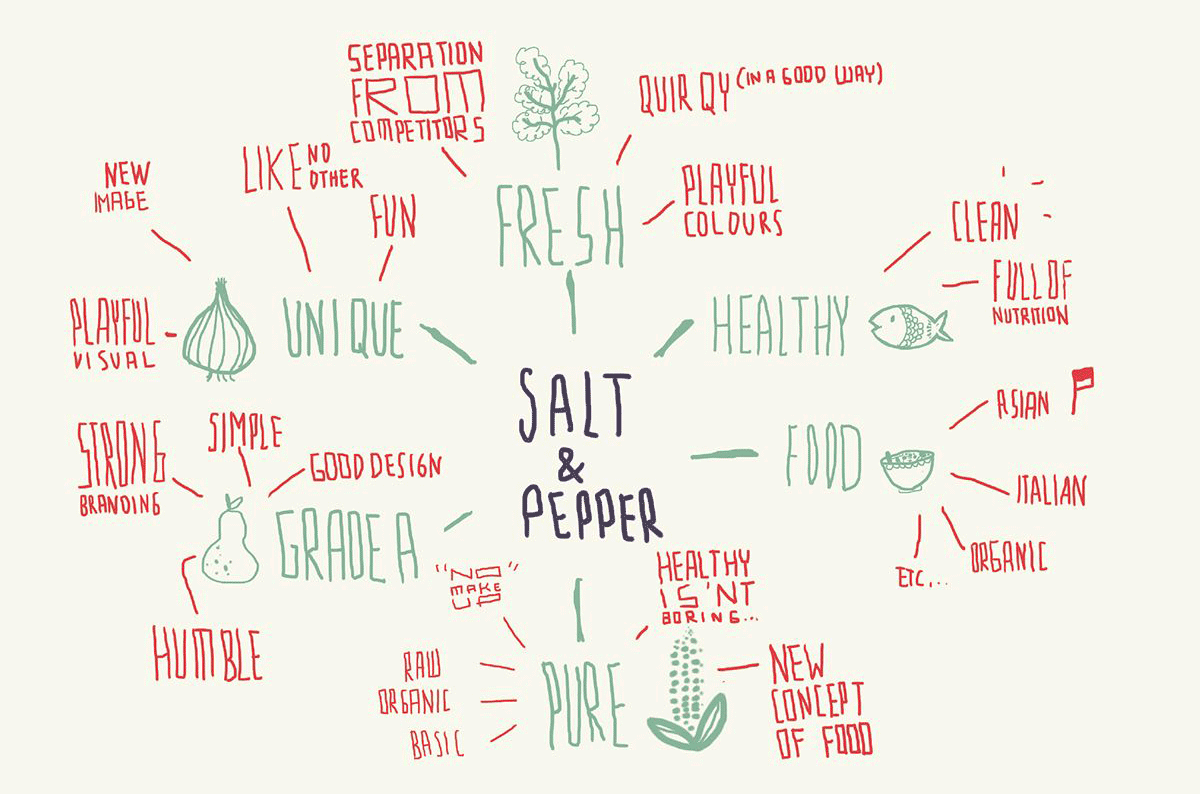 SEPARATION
FROM
COMPETITORS
QUIRQY (IN A GOOD WAY)
FRESH
PLAYFUL
COLOURS
NEW
IMAGE
LIKE NO
OTHER
FUN
UNIQUE
PLAYFUL
VISUAL
CLEAN
HEALTHY
FULL OF
NUTRITION
SALT
&
PEPPER
FOOD
ASIAN
ITALIAN
ORGANIC
ETC...
STRONG
BRANDING
SIMPLE
GOOD DESIGN
GRADE A
HUMBLE
"NO"
MAKE
UP
HEALTHY
IS'NT
BORING...
RAW
ORGANIC
BASIC
PURE
NEW
CONCEPT
OF FOOD